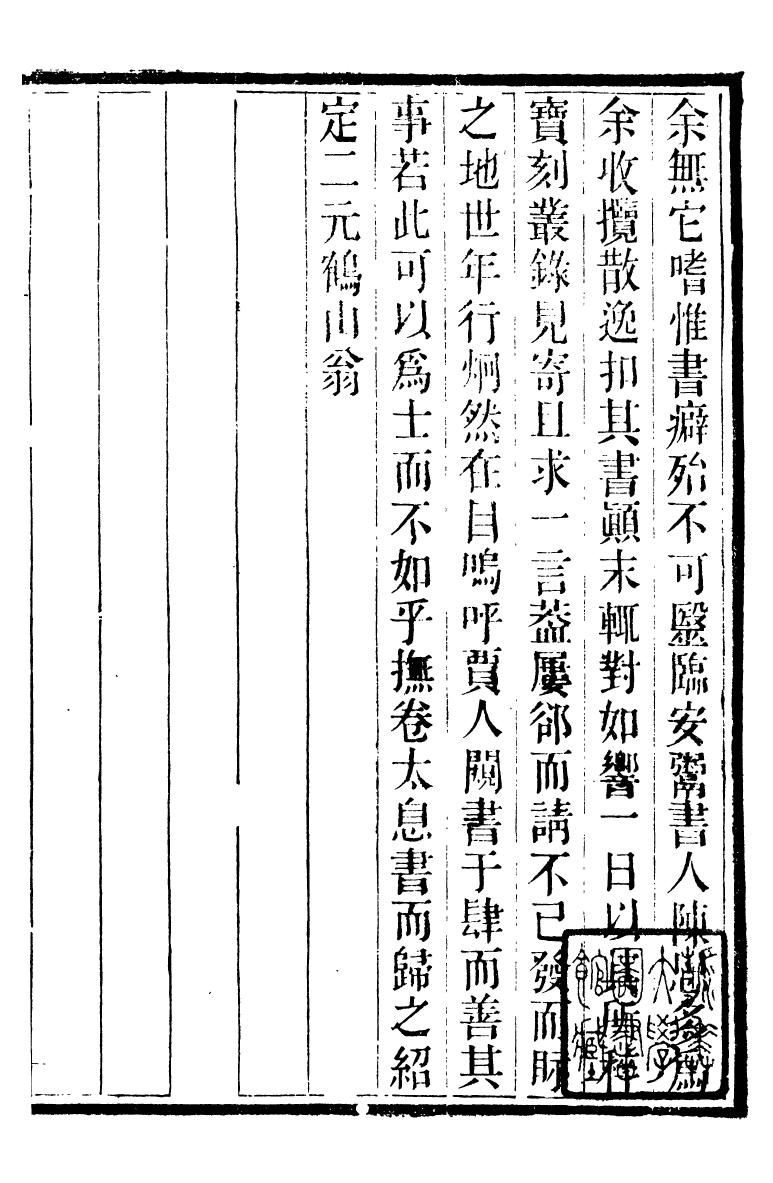 余無它嗜惟書癖殆不可毉臨安鬻書人陳思多爲
余收攬散逸扣其書顚末輒對如響一日以其所稡
寶刻叢錄見寄且求一言葢屢郤而請不已發而眡
之地世年行烱然在目嗚呼賈人闚書于肆而善其
事若此可以爲士而不如乎撫卷太息書而歸之紹
定二元鶴山翁
大學